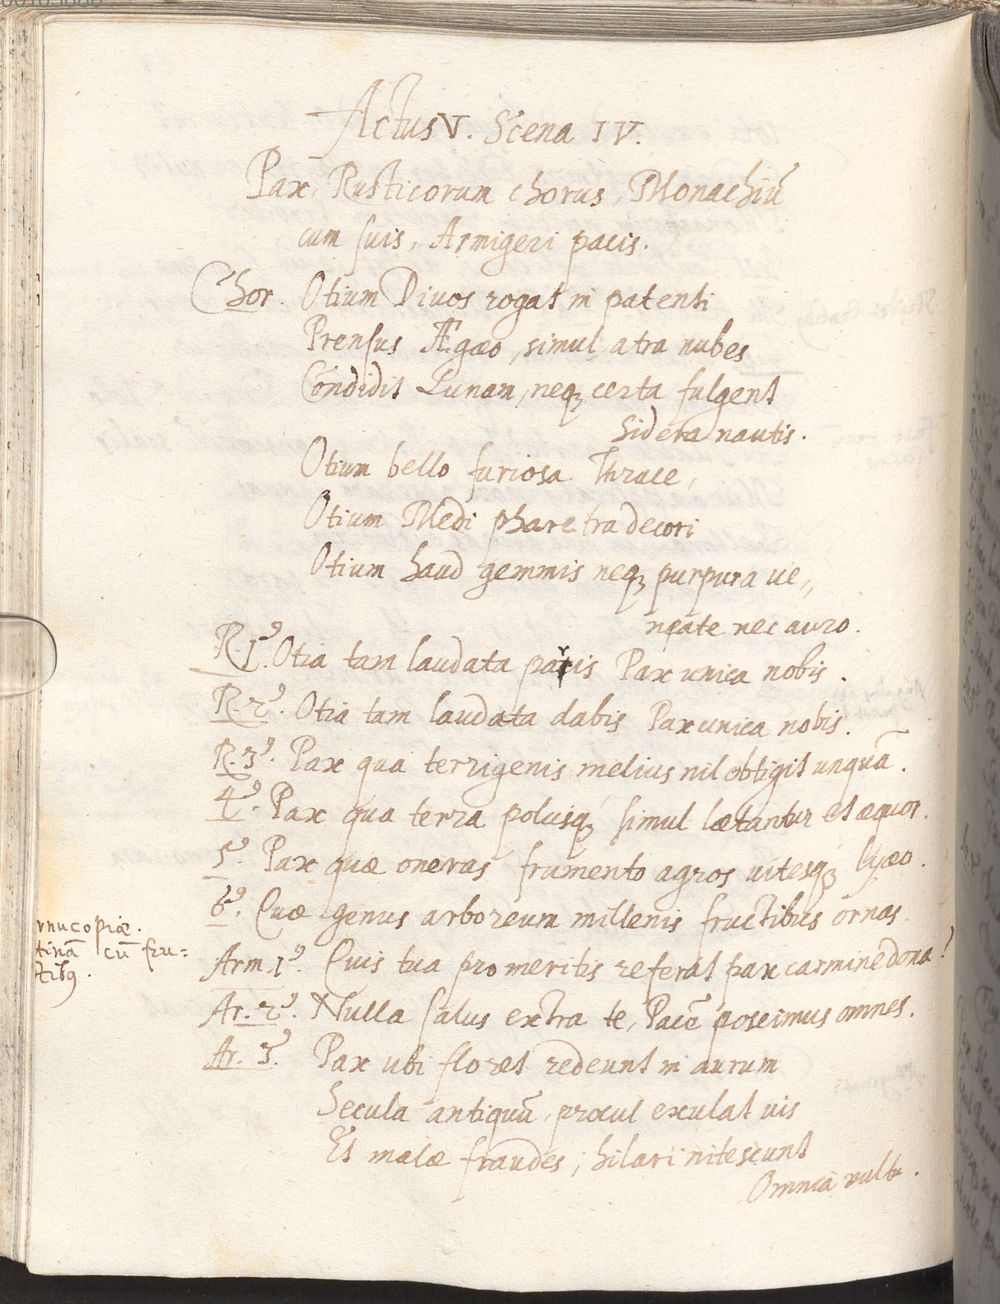 Actus V. Scena IV.
Pax, Rusticorum chorus, Monachiū
cum suis, Armigeri pacis.
Chor. Otium Divos rogat in patenti
Prensus Ægæo, simul atra nubes
Condidit Lunam, neqꝫ certa fulgent
Sidera nautis.
Otium bello furiosa Thrace,
Otium Medi pharetra decori
Otium haud gemmis neqꝫ purpura ve,,
neate nec auro.
R. 1⁹. Otia tam laudata paris Pax unica nobis.
R. 2⁹. Otia tam laudata dabis Pax unica nobis.
R. 3⁹. Pax qua terrigenis melius nil obtigit unquā.
4⁹. Pax qua terra polusqꝫ simul lætantur et æquor.
5⁹. Pax quæ oneras frumento agros vitesqꝫ lyæo.
6⁹. Quæ genus arboreum millenis fructibus ornas.
rnucopiæ.
tinā cū fru=
ctibꝰ.
Arm. 1⁹. Quis tua pro meritis referat pax carmine dona?
Ar. 2⁹. Nulla salus extra te, Pacē poscimus omnes.
Ar. 3⁹. Pax ubi floret redeunt in aurum
Secula antiquū, procul exulat vis
Et malæ fraudes, hilari nitescunt
Omnia vultu.